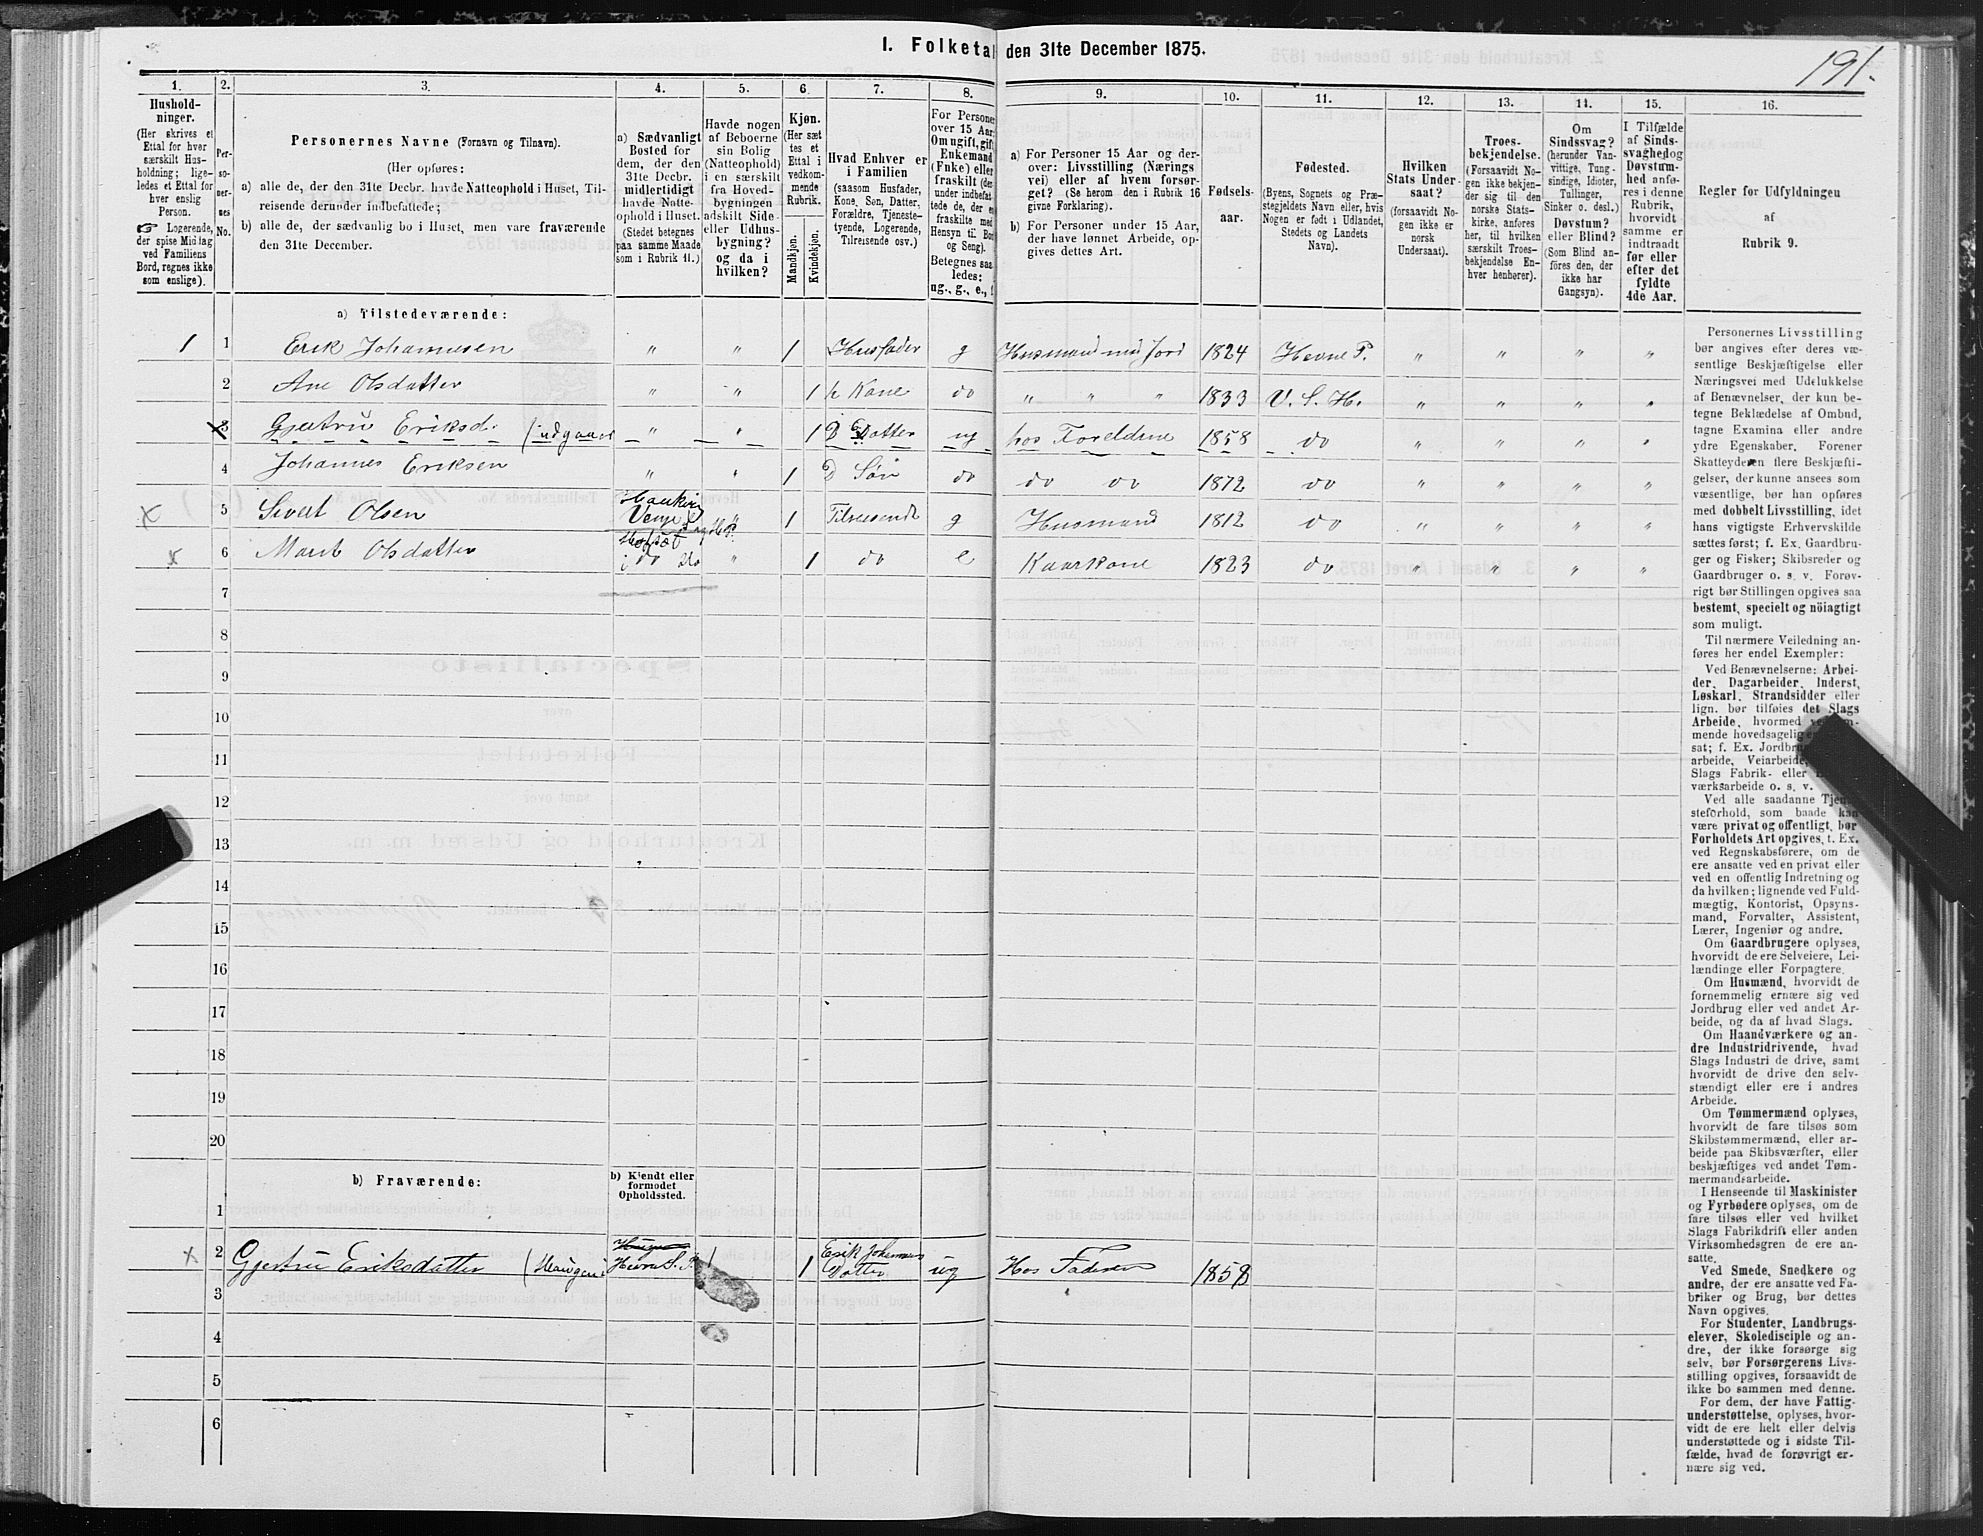 191.
I. Folketal den 31te December 1875.
1. 2. 3. 4. 5. 6. 7. 8. 9. 10. 11. 12. 13. 14. 15. 16.
Hushold-
ninger.
(Her skrives et
Ettal for hver
særskilt Hus-
holdning; lige-
ledes et Ettal for
hver enslig
Person.
☞ Logerende,
der spise Middag
ved Familiens
Bord, regnes ikke
som enslige).
Per-
so-
ner-
nes
No.
Personernes Navne (Fornavn og Tilnavn).
(Her opføres:
a) alle de, der den 31te Decbr. havde Natteophold i Huset, Til-
reisende derunder indbefattede;
b) alle de, der sædvanlig bo i Huset, men vare fraværende
den 31te December.
a) Sædvanligt
Bosted for
dem, der den
31te Decbr.
midlertidigt
havde Natte-
ophold i Huset.
(Stedet betegnes
paa samme Maade
som i Rubrik 11.)
Havde nogen
af Beboerne
sin Bolig
(Natteophold)
i en særskilt
fra Hoved-
bygningen
adskilt Side-
eller Udhus-
bygning?
og da i
hvilken?
Kjøn.
(Her sæt
tes et
Ettal i
vedkom-
mende
Rubrik.
Mandkjøn.
Kvindekjøn.
Hvad Enhver er
i Familien
(saasom Husfader,
Kone, Søn, Datter,
Forældre, Tjeneste-
tyende, Logerende,
Tilreisende osv.)
For Personer
over 15 Aar:
Om ugift, gift,
Enkemand
(Enke) eller
fraskilt (der-
under indbefat-
tede de, der er
fraskilte med
Hensyn til Bord
og Seng).
Betegnes saa-
ledes:
ug., g., e., f.
a) For Personer 15 Aar og der-
over: Livsstilling (Nærings-
vei) eller af hvem forsør-
get? (Se herom den i Rubrik 16
givne Forklaring).
b) For Personer under 15 Aar,
der have lønnet Arbeide, op-
gives dettes Art.
Fødsels-
aar.
Fødested.
(Byens, Sognets og Præ-
stegjeldets Navn eller, hvis
Nogen er født i Udlandet,
Stedets og Landets
Navn).
Hvilken
Stats Under-
saat?
(forsaavidt No-
gen ikke er
norsk
Undersaat).
Troes-
bekjendelse.
(Forsaavidt No-
gen ikke bekjen-
der sig til den
norske Stats-
kirke, anføres
her, til hvilken
særskilt Troes-
bekjendelse En-
hver henhører).
Om
Sindssvag?
(herunder Van-
vittige, Tung-
sindige, Idioter,
Tullinger,
Sinker o. desl.)
Døvstum?
eller Blind?
(Som Blind an-
føres den, der
ikke har
Gangsyn).
I Tilfælde
af Sinds-
svaghed og
Døvstum-
hed anfø-
res i denne
Rubrik,
hvorvidt
samme er
indtraadt
før eller
efter det
fyldte
4de Aar.
Regler for Udfyldningen
af
Rubrik 9.
a) Tilstedeværende:
1 1 Erik Johannesen " " 1 Husfader g Husmand med Jord 1824 Hevne P. " " " "
2 Ane Olsdatter " " 1 h Kone do " " " 1833 V. S. H. " " " "
x 3 Gjertru Eriksd. (udgaar " " 1 D Datter ug hos Foreldrene 1858 do " " " "
4 Johannes Eriksen " " 1 D Søn do do do 1872 do " " " "
x 5 Sivert Olsen Venje " 1 Tilreisende g Husmand 1812 do " " " "
x 6 Marit Olsdatter do " 1 do e Kaarkone 1823 do " " " "
7
8
9
10
11
12
13
14
15
16
17
18
19
20
b) Fraværende:
b) Kjendt eller
formodet
Opholdssted.
1
x 2 Gjertru Eriksdatter 1 Erik Johannes Datter ug Hos Faderen 1858
3
4
5
6
Personernes Livsstilling
bør angives efter deres væ-
sentlige Beskjæftigelse eller
Næringsvei med Udelukkelse
af Benævnelser, der kun be-
tegne Beklædelse af Ombud,
tagne Examina eller andre
ydre Egenskaber. Forener
Skatteyderen flere Beskjæfti-
gelser, der kunne ansees som
væsentlige, bør han opføres
med dobbelt Livsstilling, idet
hans vigtigste Erhvervskilde
sættes først; f. Ex. Gaardbru-
ger og Fisker; Skibsreder og
Gaardbruger o. s. v. Forøv-
rigt bør Stillingen opgives saa
bestemt, specielt og nöiagtigt
som muligt.
Til nærmere Veiledning an-
føres her endel Exempler:
Ved Benævnelserne: Arbei-
der, Dagarbeider, Inderst,
Løskarl, Strandsidder eller
lign. bør tilføies det Slags
Arbeide, hvormed
mende hovedsagelig
sat; f. Ex.
arbeide, Veiarbeide,
Slags Fabrik- eller
værksarbeide o. s. v.
Ved alle saadanne Tjene-
steforhold, som baade kan
være privat og offentligt, bør
Forholdets Art opgives, t. Ex.
ved Regnskabsførere, om de
ere ansatte ved en privat eller
ved en offentlig Indretning og
da hvilken; lignende ved Fuld-
mægtig, Kontorist, Opsyns-
mand, Forvalter, Assistent,
Lærer, Ingeniør og andre.
Om Gaardbrugere oplyses,
hvorvidt de ere Selveiere, Lei-
lændinge eller Forpagtere.
Om Husmænd, hvorvidt de
fornemmelig ernære sig ved
Jordbrug eller ved andet Ar-
beide, og da af hvad Slags.
Om Haandværkere og an-
dre Industridrivende, hvad
Slags Industri de drive, samt
hvorvidt de drive den selv-
stændigt eller ere i andres
Arbeide.
Om Tømmermænd oplyses,
hvorvidt de fare tilsøs som
Skibstømmermænd, eller ar-
beide paa Skibsværfter, eller
beskjæftiges ved andet Tøm-
mermandsarbeide.
I Henseende til Maskinister
og Fyrbødere oplyses, om de
fare tilsøs eller ved hvilket
Slags Fabrikdrift eller anden
Virksomhedsgren de ere an-
satte.
Ved Smede, Snedkere og
andre, der ere ansatte ved Fa-
briker og Brug, bør dettes
Navn opgives.
For Studenter, Landbrugs-
elever, Skoledisciple og an-
dre, der ikke forsørge sig
selv, bør Forsørgerens Livs-
stilling opgives, forsaavidt de
ikke bo sammen med denne.
For dem, der have Fattig-
understøttelse, oplyses, hvor-
vidt de ere helt eller delvis
understøttede og i sidste Til-
fælde, hvad de forøvrigt er-
nære sig ved.